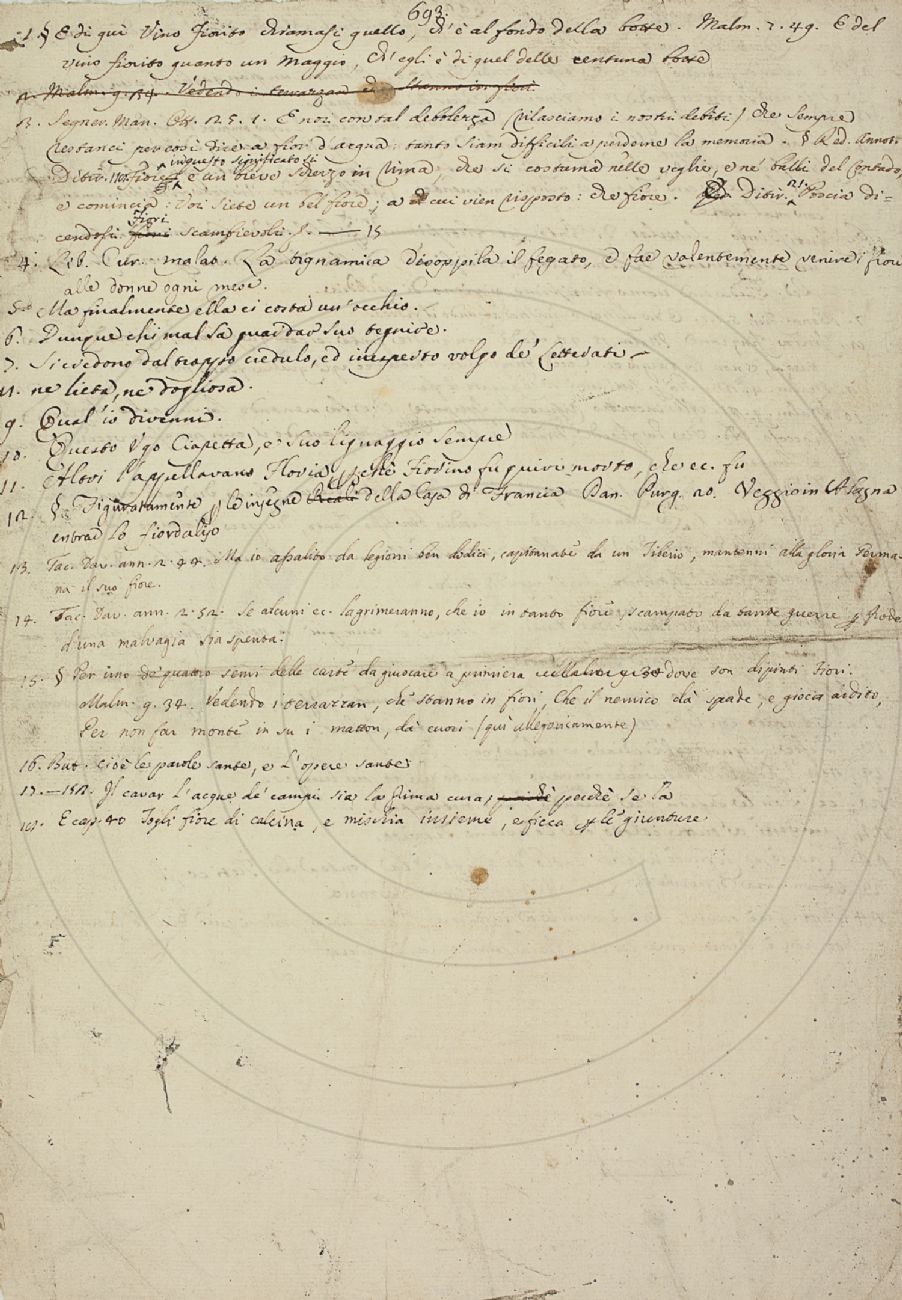 693.
1. § E di qui Vino fiorito chiamasi quello, ch'è al fondo della botte. Malm. 7. 49. E del
vino fiorito quanto un Maggio, Ch'egli è di quel delle centuna botte
2. Malm. 9. 34. Vedendo i terrazzan che stanno in fiori.
3. Segner. Man. Ott. 25. 1. E noi con tal debolezza (rilasciamo i nostri debiti) che sempre
restanci per così dire a fior d'acqua: tanto siam difficili a perderne la memoria. § Red. Annot.
in questo significato si
Ditir. 110. Fiore è un breve scherzo in rima, che si costuma nelle veglie, e ne' balli del Contado,
e comincia: Voi siete un bel fiore; a cui vien risposto: che fiore. Ditir. Poscia di=
Fiori
cendosi fiori scambievoli. S. — 15
4. Lib. Cur. malat. La bignamica disoppila il fegato, e fae valentemente venire i fiori
alle donne ogni mese.
5. Ma finalmente ella ci costa un'occhio.
6. Dunque chi mal sa guardar suo tegnire.
7. Si credono dal troppo credulo, ed inesperto volgo de' Letterati.
11. ne lieta, ne dogliosa.
9. Qual'io divenni.
10. Questo Ugo Ciapetta, e suo lignaggio sempre
11. Altri l'appellavano Floria, pchè Fiorino fu quivi morto, che ec. fu
12. § Figuratamente p le insegne della Casa di Francia Dan. Purg. 20. Veggio in Alagna
entrar lo fiordaliso
13. Tac. Dav. ann. 2. 44. Ma io assalito da legioni ben dodici, capitanate da un Tiberio, mantenni alla gloria Germa-
na il suo fiore.
14. Tac. Dav. ann. 2. 52. Se alcuni ec. lagrimeranno, che io in tanto fiore, scampato da tante guerre p frode
d'una malvagia sia spenta.
15. § Per uno de' quattro semi delle carte da giuocare a primiera dove son dipinti Fiori.
Malm. 9. 34. Vedendo i terrazzan, che stanno in fiori, Che il nemico dà spade, e giocca ardito,
Per non far monte in su i matton, dà cuori (qui allegoricamente)
16. But. cioè le parole sante, e l'opere sante
17. —152. Il cavar l'acque de' campi sia la prima cura, perchè se la
19. E cap. 40 Togli fiore di calcina, e mischia insieme, e ficca p le giunture.